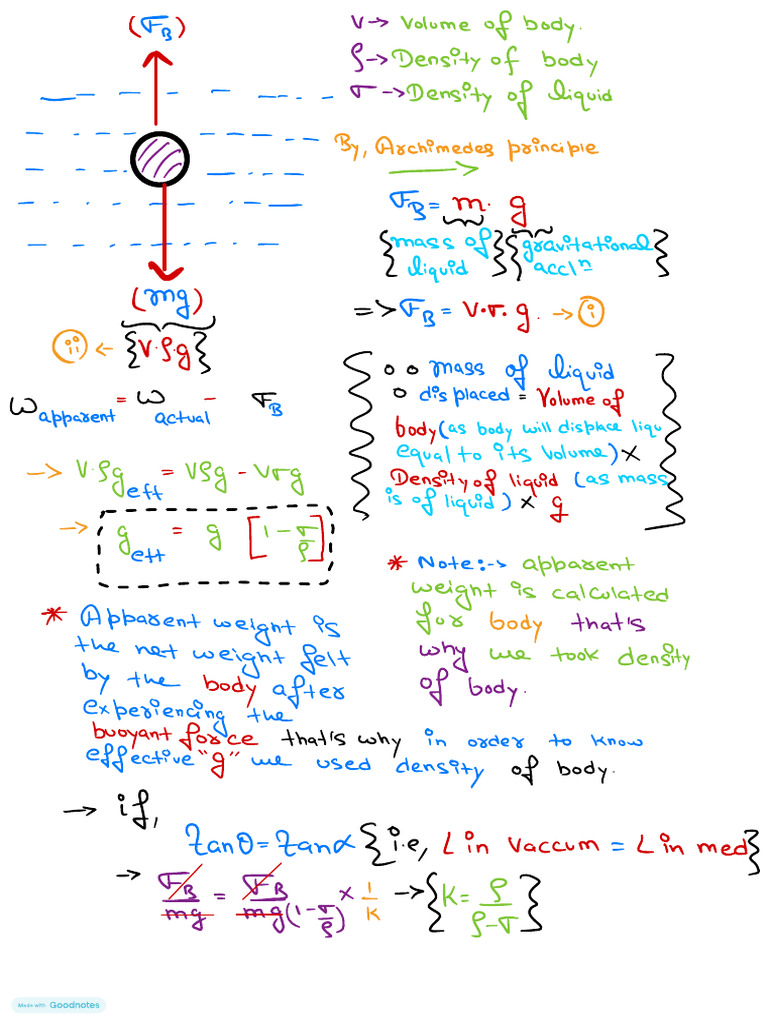 (F_B)
V → Volume of body.
ρ → Density of body
σ → Density of liquid
By, Archimedes principle
F_B = m. g
{mass of liquid} {gravitational accl^n}
=> F_B = V.σ.g. → (i)
(mg)
{V.ρ.g}
(ii) ←
W_apparent = W_actual - F_B
→ V.ρg_eff = Vρg - Vσg
→ g_eff = g [1 - σ/ρ]
∴ mass of liquid
displaced = Volume of
body (as body will displace liqu
equal to its volume) ×
Density of liquid (as mass
is of liquid) × g
* Note:-> apparent
weight is calculated
for body that's
why we took density
of body.
* Apparent weight is
the net weight felt
by the body after
experiencing the
buoyant force that's why in order to know
effective "g" we used density of body.
→ if,
tanθ = tanα {i.e, ∠ in vaccum = ∠ in med}
→ F_B/mg = F_B/mg(1-σ/ρ) × 1/K → {K = ρ/ρ-σ}
Made with Goodnotes